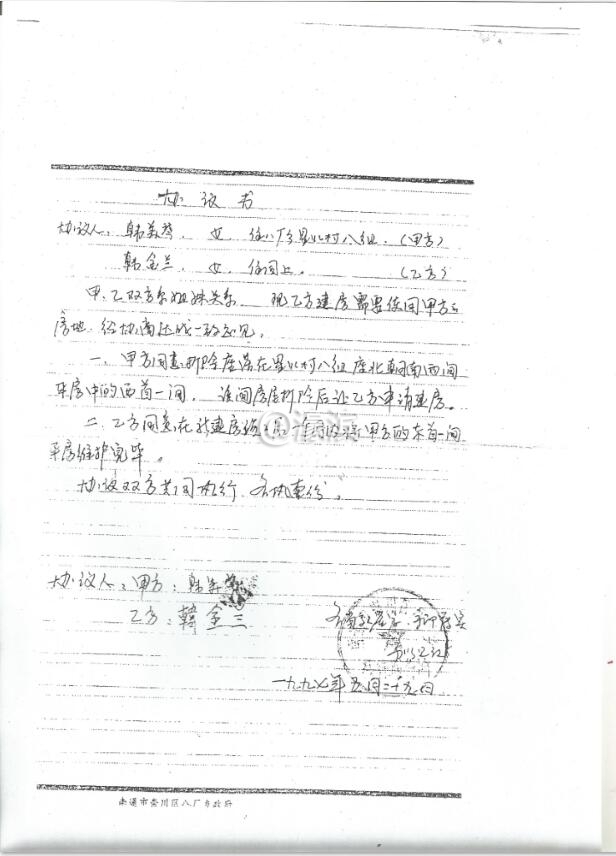 协议书
协议人：韩美琴，女，住八厂乡星火村八组，（甲方）
韩金兰，女，住同上。（乙方）
甲、乙双方系姐妹关系，现乙方建房需要使用甲方的
房地，经协商达成一致意见。
一、甲方同意拆除座落在星火村八组座北朝南西间
平房中的西首一间，该间房屋拆除后让乙方申请建房。
二、乙方同意在新建房后 将甲方的东首一间
平房维护完毕。
协议双方共同执行，各执壹份。
协议人：甲方：韩美琴
乙方：韩金兰
一九九七年五月二十九日
南通市崇川区八厂乡政府